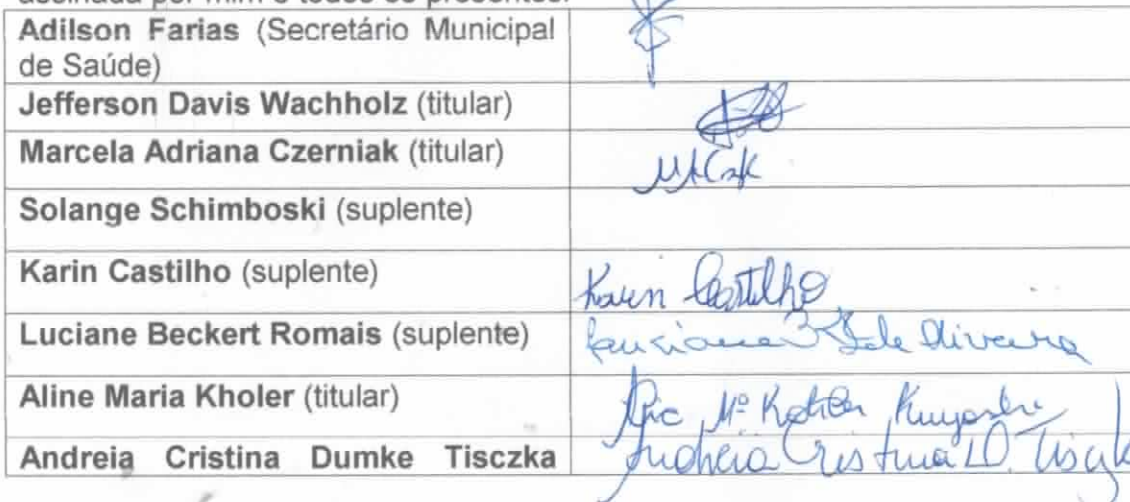 assinada por mim e todos os presentes.
Adilson Farias (Secretário Municipal
de Saúde)
Jefferson Davis Wachholz (titular)
Marcela Adriana Czerniak (titular)
Solange Schimboski (suplente)
Karin Castilho (suplente)
Karin Castilho
Luciane Beckert Romais (suplente)
Luciane de Oliveira
Aline Maria Kholer (titular)
Mª
Andreia Cristina Dumke Tisczka
Andreia Cristina D.